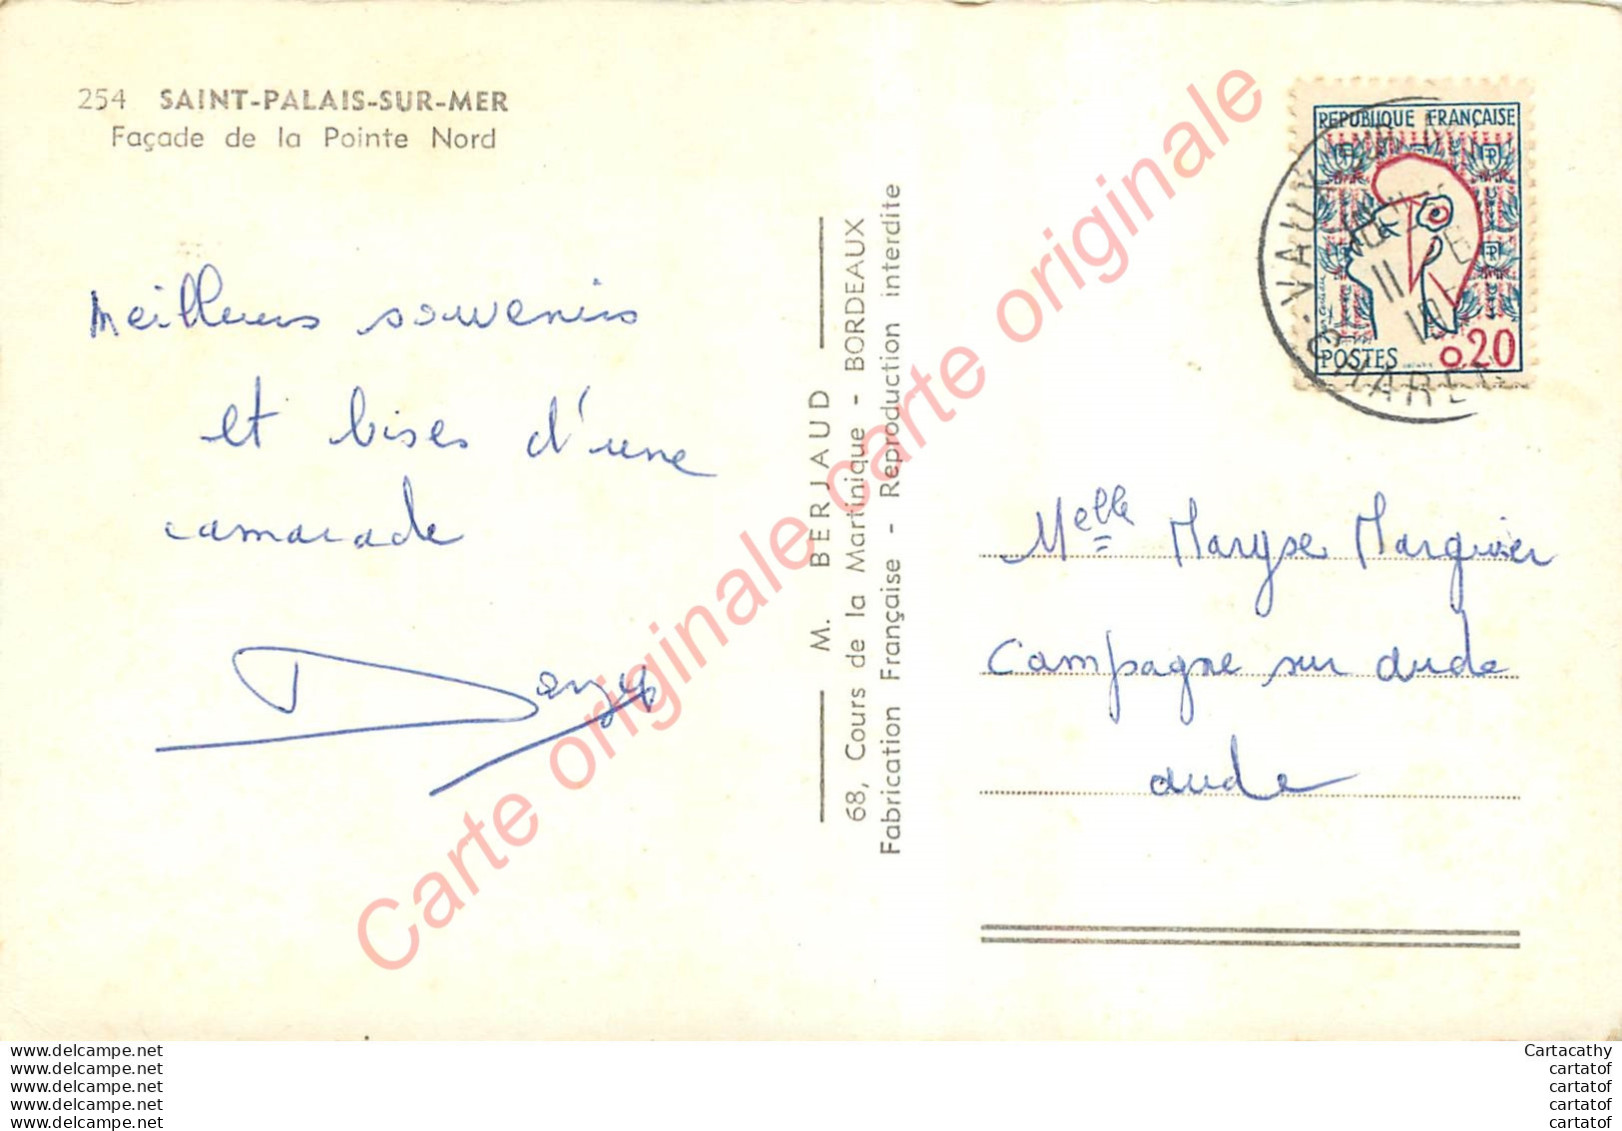 254 SAINT-PALAIS-SUR-MER
Façade de la Pointe Nord
Meilleurs souvenirs
et bises d'une
camarade
M. BERJAUD
68, Cours de la Martinique - BORDEAUX
Fabrication Française - Reproduction interdite
Carte originale carte originale
REPUBLIQUE FRANÇAISE
POSTES 0.20
11
Melle Maryse Marquier
Campagne sur aude
aude
www.delcampe.net
www.delcampe.net
www.delcampe.net
www.delcampe.net
www.delcampe.net
Cartacathy
cartatof
cartatof
cartatof
cartatof